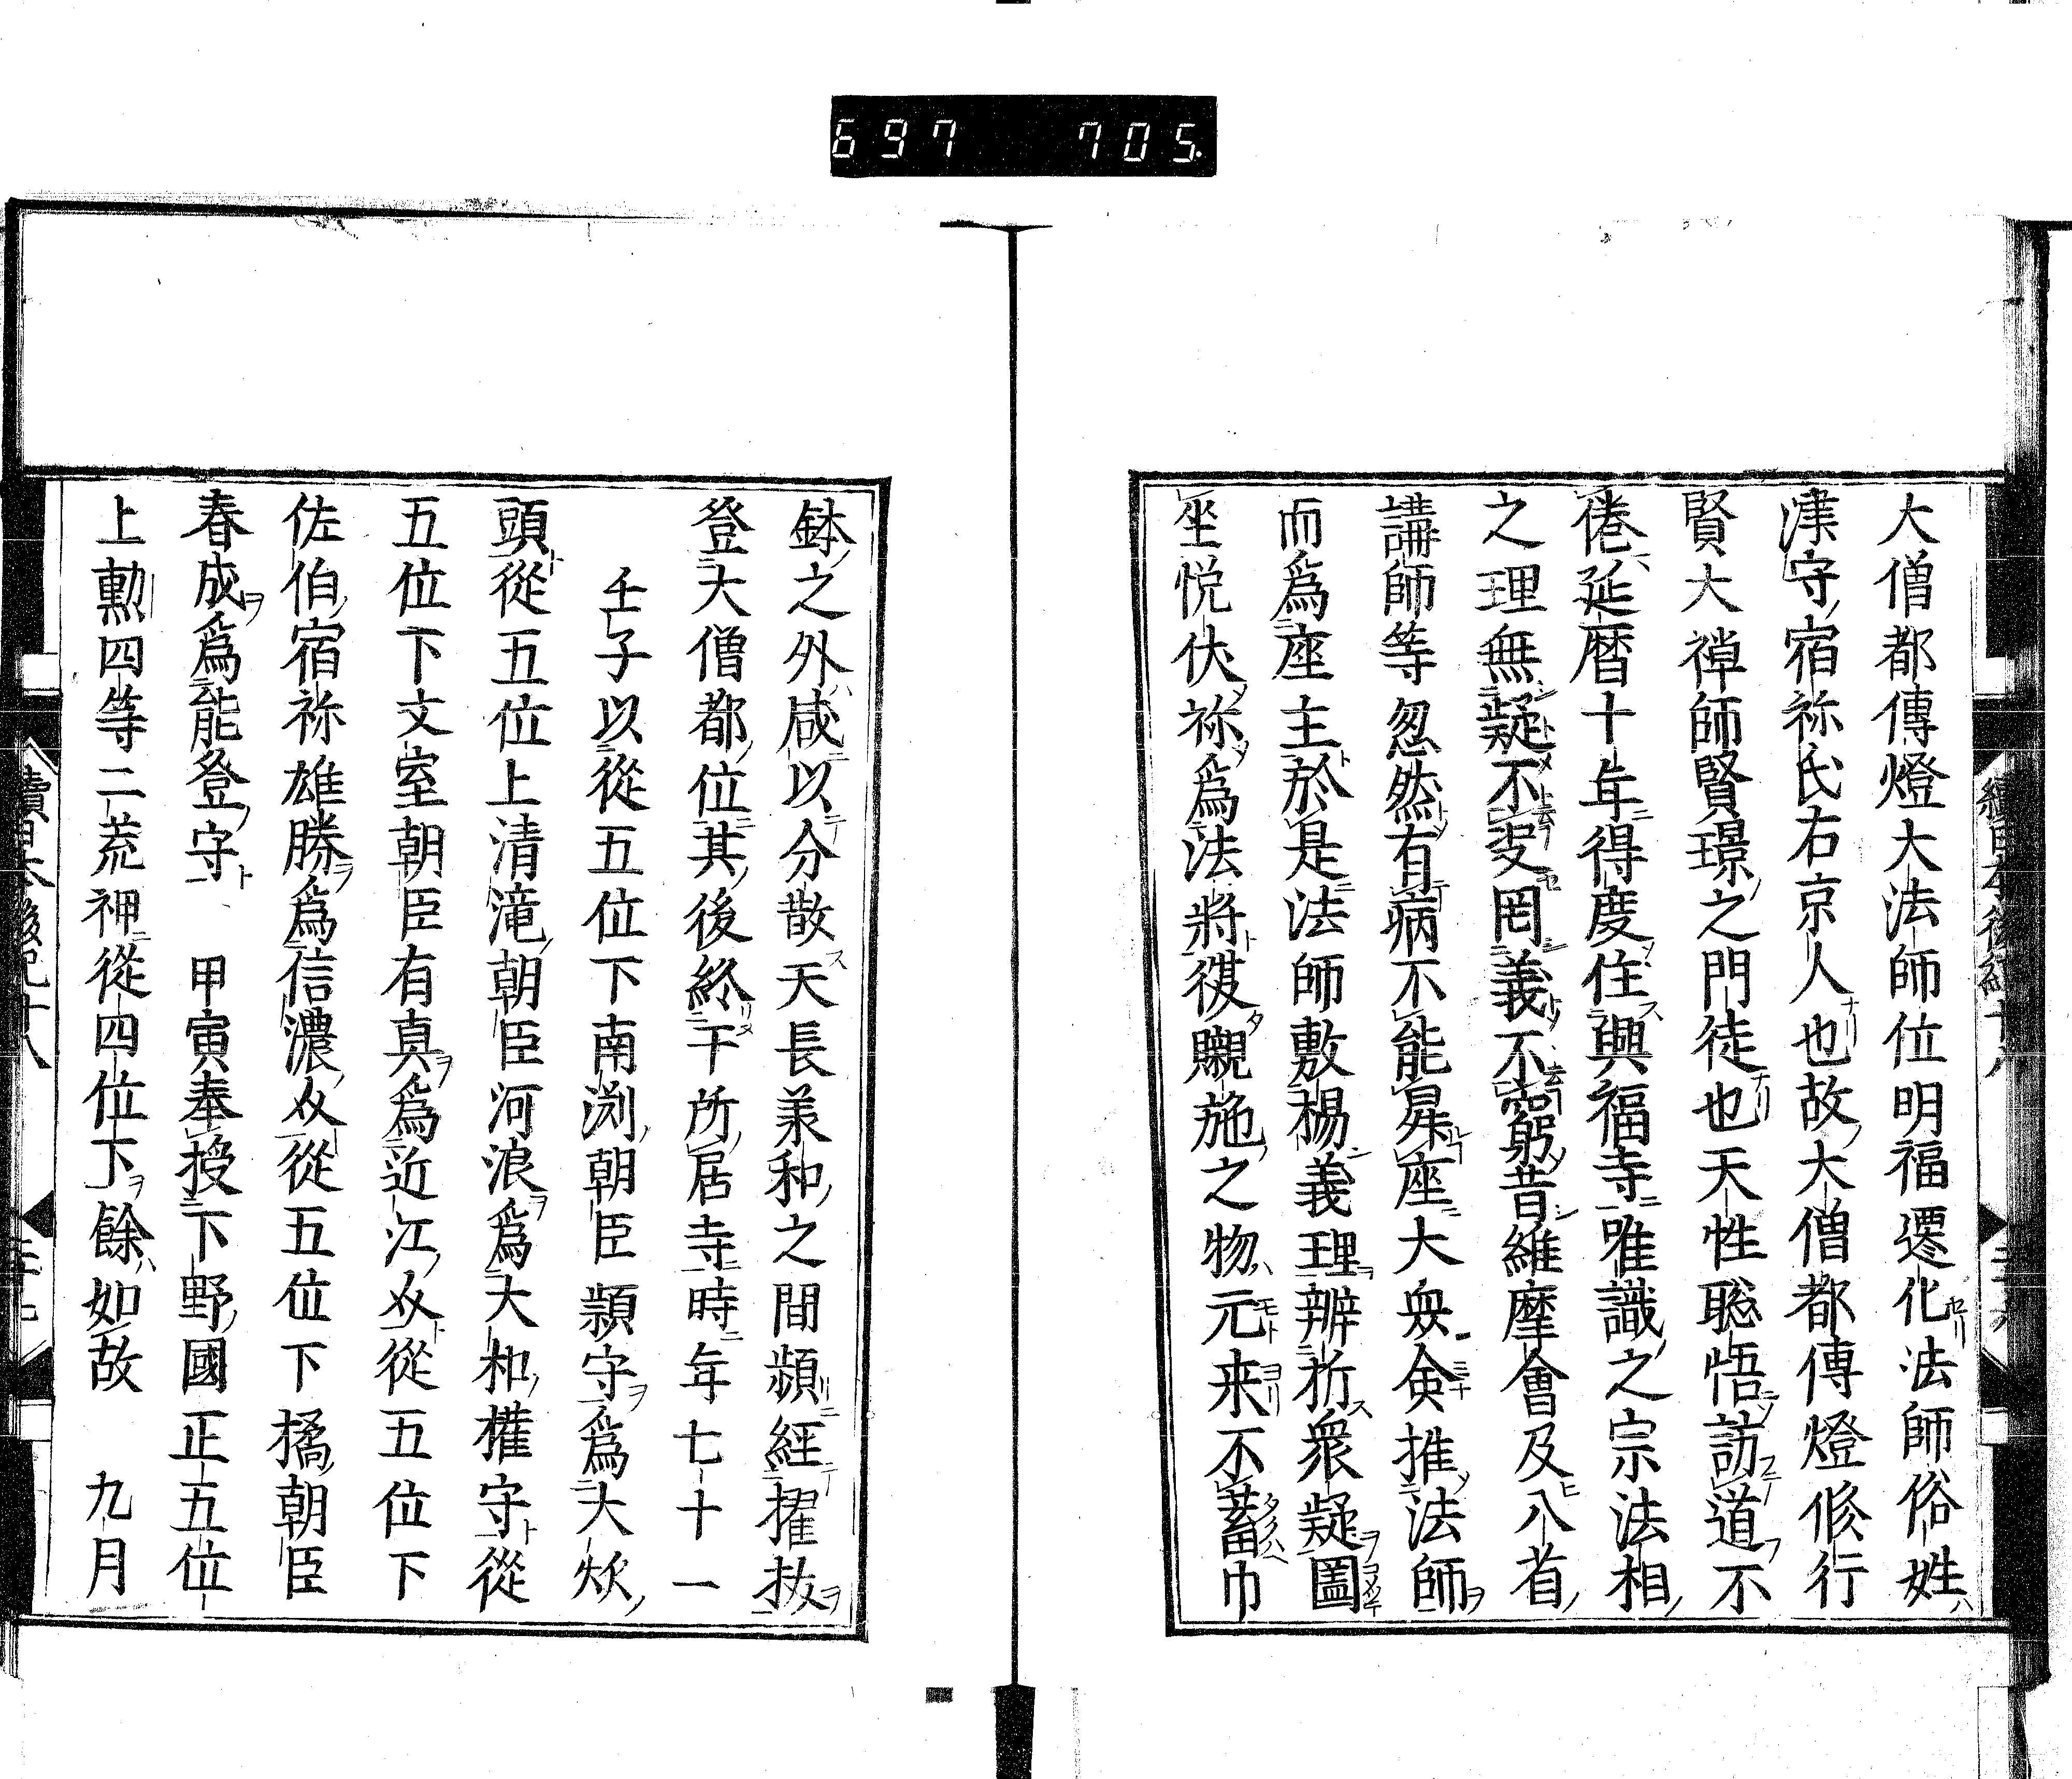 697 705.
大僧都傳燈大法師位明福遷化法師俗姓
津守宿祢氏右京人也故大僧都傳燈修行
賢大禅師賢璟之門徒也天性聡悟訪道不
倦延暦十年得度住興福寺唯識之宗法相
之理無疑不決罔義不窮昔維摩會及八省
講師等忽然有病不能昇座大衆僉推法師
而為座主於是法師敷楊義理辨析衆疑圖
座悦伏祢為法將復嚫施之物元来不蓄巾
鉢之外咸以分散天長羕和之間頻經擢拔
登大僧都位其後終于所居寺時年七十一
壬子以從五位下南渕朝臣頴守為大炊
頭從五位上清滝朝臣河浪為大和權守從
五位下文室朝臣有真為近江介從五位下
佐伯宿祢雄勝為信濃介從五位下橘朝臣
春成為能登守 甲寅奉授下野國正五位
上勲四等二荒神從四位下餘如故 九月
續日本後紀十八